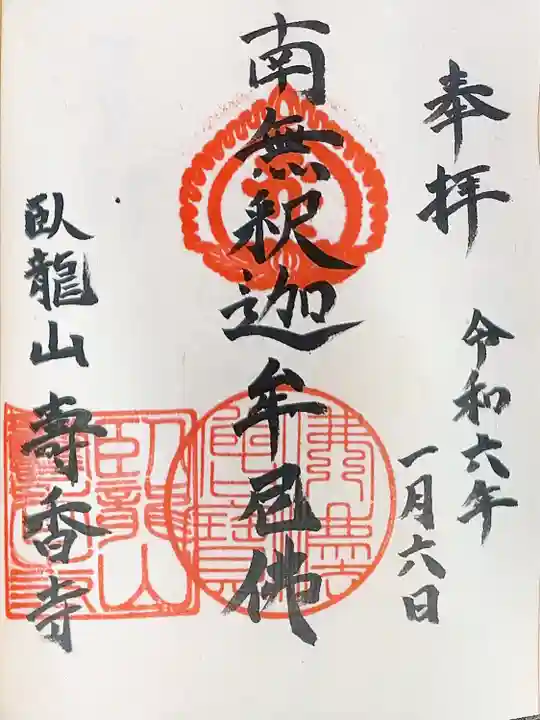 奉拝
令和六年
一月六日
南無釈迦牟尼佛
臥龍山 壽香寺
臥龍山